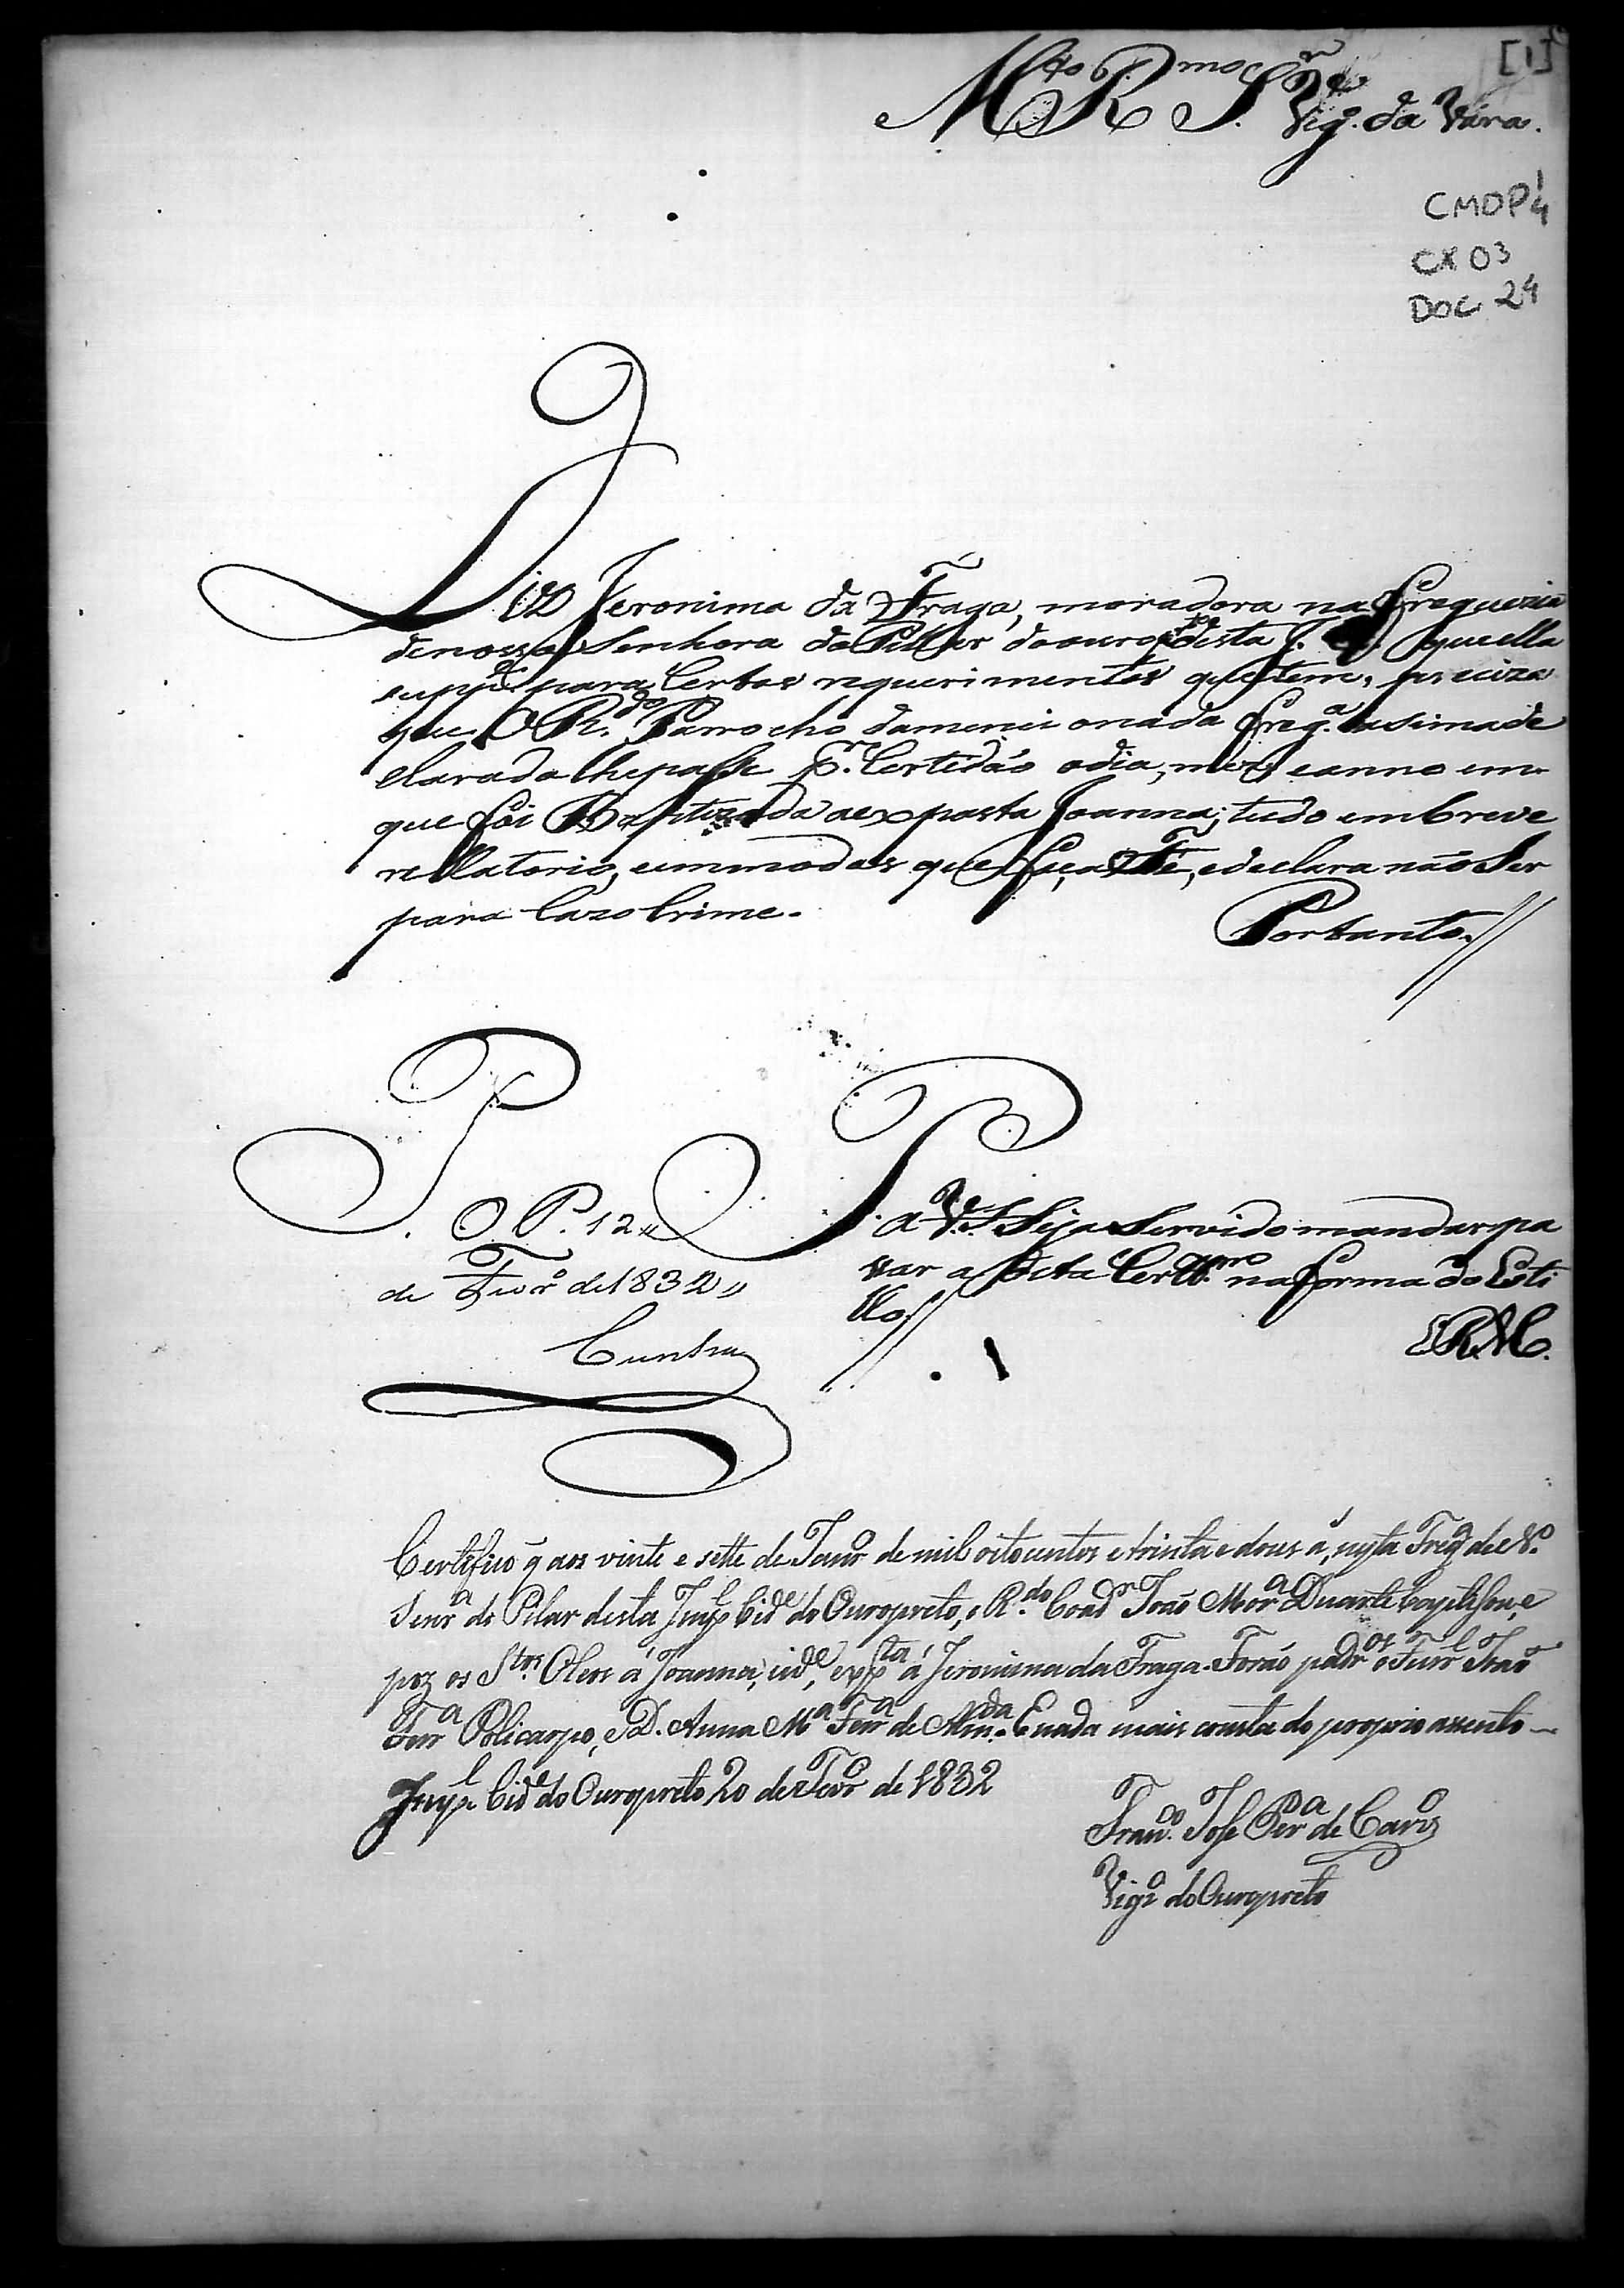 [1]
M.to R.mo S.r Vig.o da Vara.
CMOP 1/4
CX 03
DOC 24
Diz Jeronima da Fraga, moradora na Freguezia
denossa Senhora do Pillar doouro p.to desta J. C. que ella
supp.e para Certos requerimentos que tem, preciza
que O R.do Parrocho damencionada Freg.a asimade
clarada lhepasse p.r Certidão odia, mez, eanno em
que foi Baptizada aexposta Joanna; tudo embreve
rellatorio, eemmodos que Faça Fé, edeclara não Ser
para Cazo Crime.
Portanto //
P. O. P. 12
de Fevr.o de 1832
Cunha
P. a V. S. Seja Servido mandar pa
sar a dita Cert.am na forma do Esti
llo //
E.R.M.
Certifico q aos vinte e sette de Janr.o de mil oitocentos e trinta e dous a, nesta Freg.a de N.
Senr.a do Pilar desta Imp.l Cid.e do Ouropreto, o R.do Coad.r João Mor.a Duarte baptisou, e
poz os S.tos Oleos á Joanna, exp.ta á Jeronima da Fraga. Forão padr.os o
Ferr.a Policarpo, e D. Anna M.a Ferr.a de Alm.da E nada mais consta do proprio assento —
Imp.l Cid.e do Ouropreto 20 de Fevr.o de 1832
Fran.co Jose Per.a de Carv.o
Vigr.o do Ouropreto